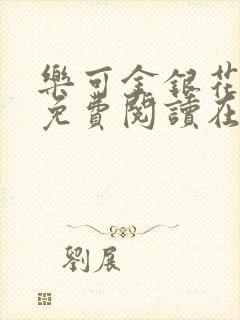 樂可金銀花
免費閱讀在
劉展